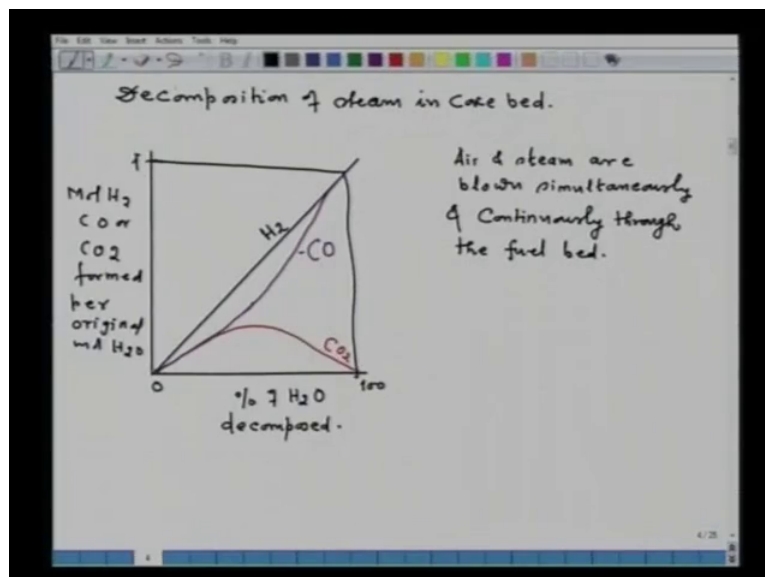 File Edit View Insert Actions Tools Help
Decomposition of steam in Coke bed.
1
Mol H2
CO or
CO2
formed
per
original
mol H2O
H2
-CO
CO2
0
100
% of H2O
decomposed.
Air & steam are
blown simultaneously
& Continuously through
the fuel bed.
4/25
4